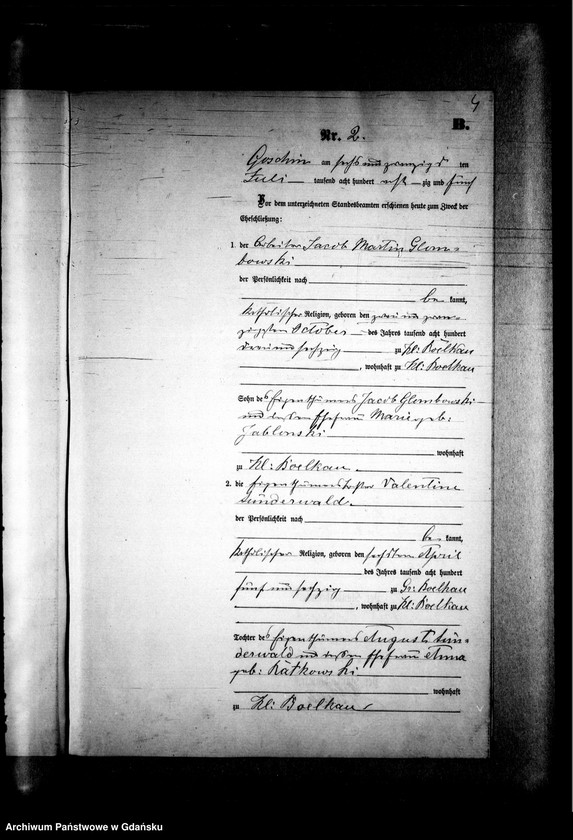 4
B.
Nr. 2.
Goschin am sechs und zwanzigs ten
Juli tausend acht hundert acht zig und fünf
Vor dem unterzeichneten Standesbeamten erschienen heute zum Zweck der
Eheschließung:
1. der Arbeiter Jacob Martin Glom-
bowski
der Persönlichkeit nach
be kannt,
katholischer Religion, geboren den zwei und zwan-
zigsten October des Jahres tausend acht hundert
drei und sechzig zu Kl: Boelkau
, wohnhaft zu Kl: Boelkau
Sohn des Eigenthümers Jacob Glombowski
und dessen Ehefrau Marie geb:
Jablonski
wohnhaft
zu Kl: Boelkau.
2. die Eigenthümerstochter Valentine
Sünderwald.
der Persönlichkeit nach
be kannt,
katholischer Religion, geboren den sechsten April
des Jahres tausend acht hundert
fünf und sechzig zu Gr: Boelkau
, wohnhaft zu Kl: Boelkau
Tochter des Eigenthümers August Sün-
derwald und dessen Ehefrau Anna
geb: Ratkowski
wohnhaft
zu Kl: Boelkau
Archiwum Państwowe w Gdańsku